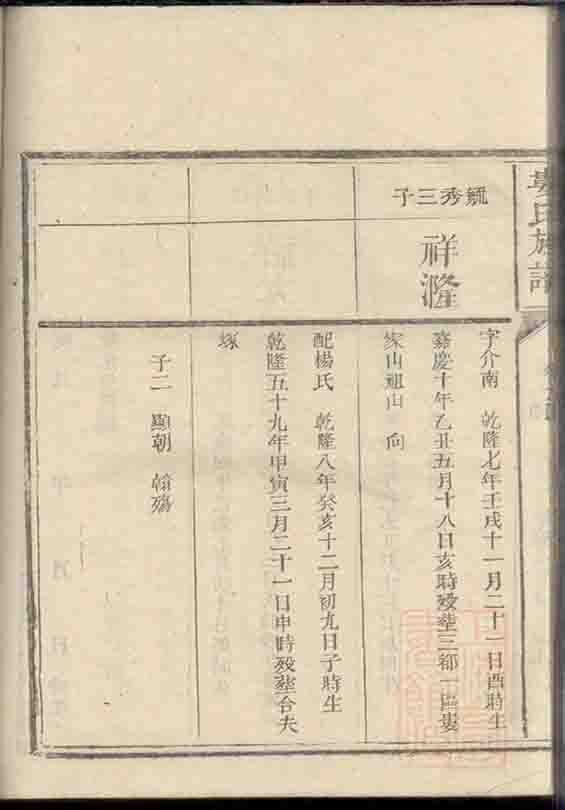 氏族譜
毓秀三子
祥隆
字介南　乾隆七年壬戌十一月二十一日酉時生
嘉慶十年乙丑五月十八日亥時歿塟三都一區婁
家山祖山　向
配楊氏　乾隆八年癸亥十二月初九日子時生
乾隆五十九年甲寅三月二十一日申時歿塟合夫
塚
子二　顯朝　翰殤